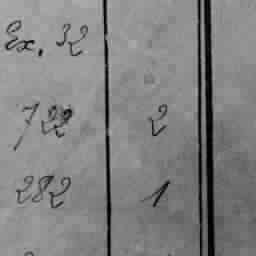 Ex. 32
722 2
282 1